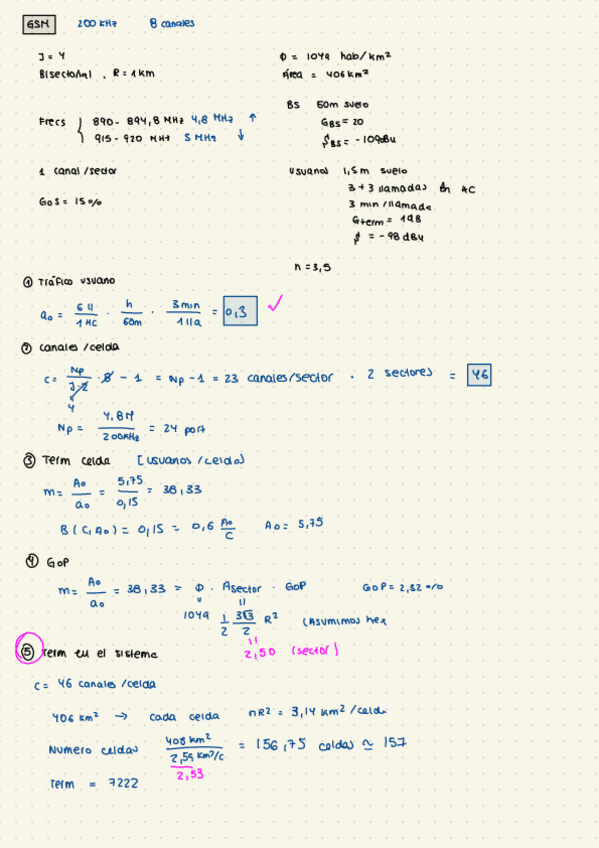 GSM 200 KHz 8 canales
J = 4
Bisectorial, R = 1 km
Frecs 890 - 894,8 MHz 4,8 MHz ↑
915 - 920 MHz 5 MHz ↓
1 canal / sector
GoS = 15%
Φ = 1049 hab/km²
Área = 406 km²
BS 60m suelo
G_BS = 20
S_BS = -109dBu
Usuarios 1,5m suelo
3 + 3 llamadas en HC
3 min / llamada
G_term = 1dB
S = -98 dBu
n = 3,5
① Tráfico usuario
a₀ = 6 ll / 1 HC · h / 60m · 3 min / 1 lla = 0,3 ✓
② Canales / celda
C = Np / J·2 · 8 - 1 = Np - 1 = 23 canales/sector · 2 sectores = 46
4
Np = 4,8M / 200KHz = 24 port
③ Term celda [usuarios / celda]
m = A₀ / a₀ = 5,75 / 0,15 = 38,33
B(C, A₀) = 0,15 = 0,6 A₀ / C A₀ = 5,75
④ GoP
m = A₀ / a₀ = 38,33 = Φ · Asector · GoP GoP = 2,82 %
1049 1/2 3√3/2 R² (Asumimos hex
2,50 (sector)
⑤ Term en el sistema
C = 46 canales / celda
406 km² → cada celda πR² = 3,14 km² / celda
Numero celdas 406 km² / 2,59 km²/c = 156,75 celdas ≃ 157
2,53
Term = 7222